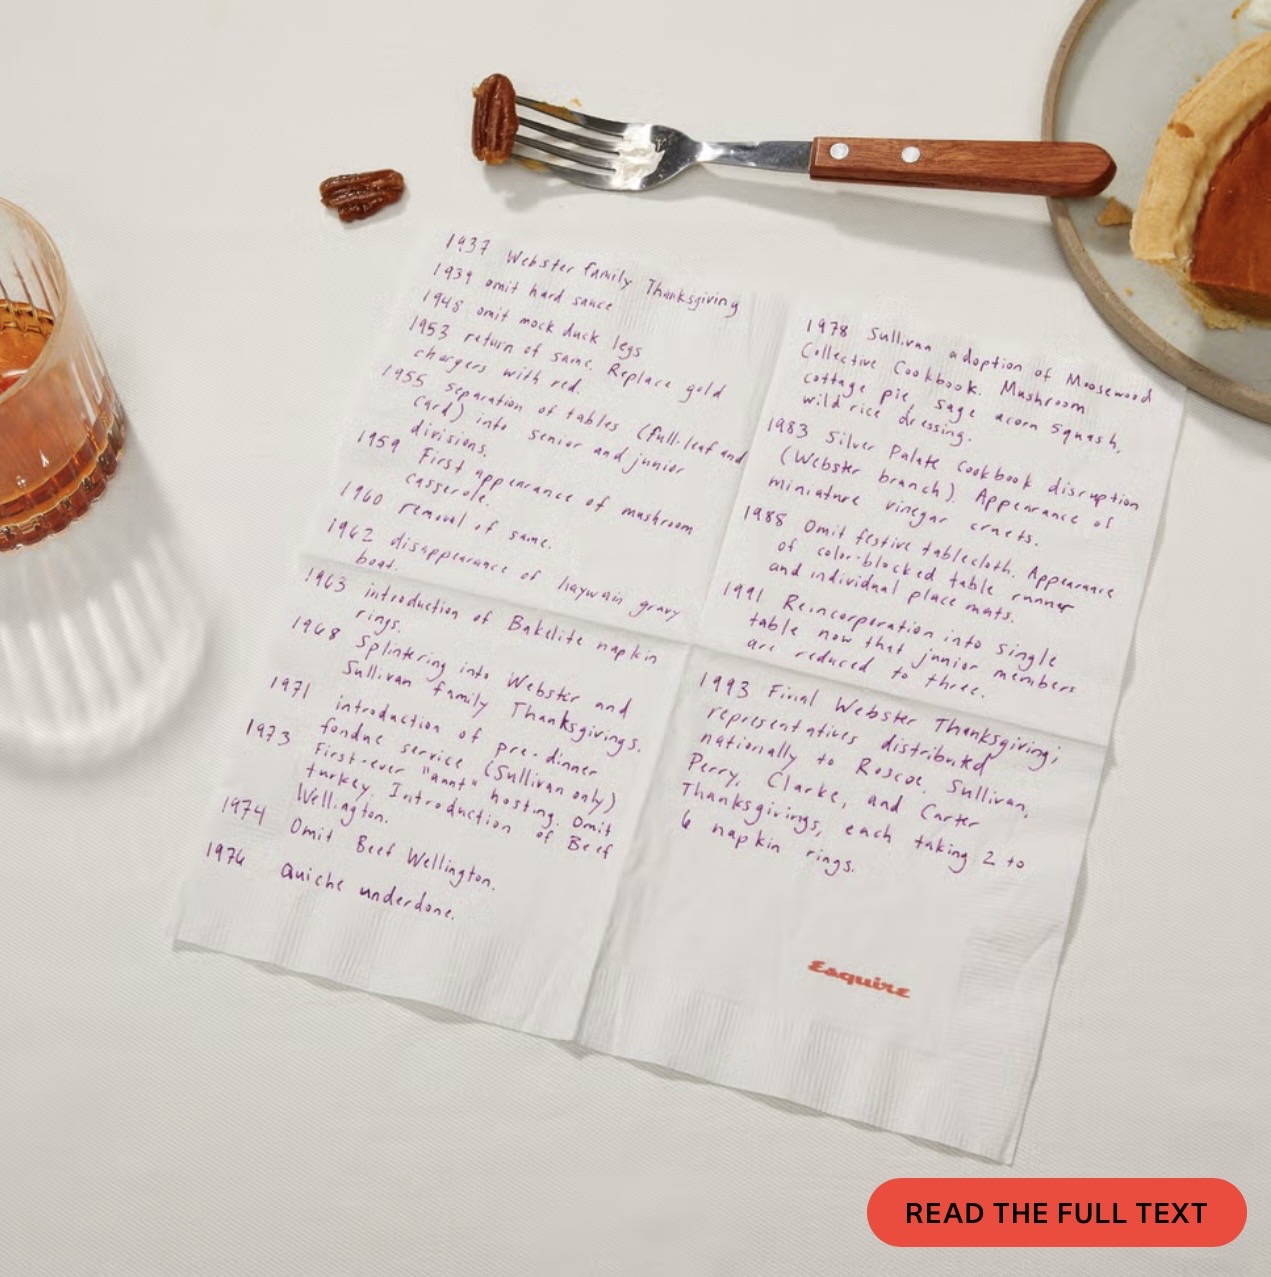 1937 Webster family Thanksgiving
1939 omit hard sauce
1948 omit mock duck legs
1953 return of same. Replace gold
chargers with red.
1955 separation of tables (full-leaf and
card) into senior and junior
divisions.
1959 First appearance of mushroom
casserole.
1960 removal of same.
1962 disappearance of haywain gravy
boat.
1963 introduction of Bakelite napkin
rings.
1968 Splintering into Webster and
Sullivan family Thanksgivings.
1971 introduction of pre-dinner
fondue service (Sullivan only)
1973 First-ever "aunt" hosting. Omit
turkey. Introduction of Beef
Wellington.
1974 Omit Beef Wellington.
1976 Quiche underdone.
1978 Sullivan adoption of Moosewood
Collective Cookbook. Mushroom
cottage pie, sage acorn squash,
wild rice dressing.
1983 Silver Palate Cookbook disruption
(Webster branch). Appearance of
miniature vinegar cruets.
1988 Omit festive tablecloth. Appearance
of color-blocked table runner
and individual place mats.
1991 Reincorporation into single
table now that junior members
are reduced to three.
1993 Final Webster Thanksgiving;
representatives distributed
nationally to Roscoe, Sullivan,
Perry, Clarke, and Carter
Thanksgivings, each taking 2 to
6 napkin rings.
Esquire
READ THE FULL TEXT